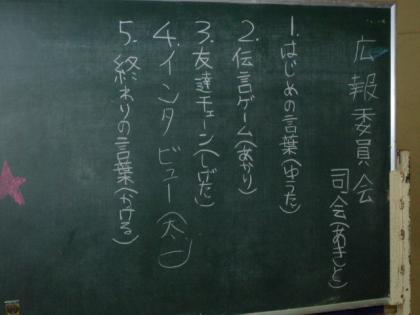 広報委員会
司会(あきと)
1.はじめの言葉(ゆうた)
2.伝言ゲーム(あかり)
3.友達チェーン(しげた)
4.インタビュー(大一)
5.終わりの言葉(かける)